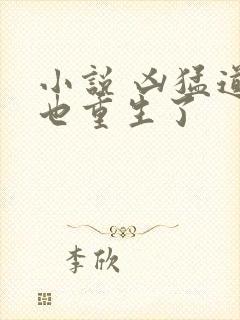 小说 凶猛道
也重生了
李欣